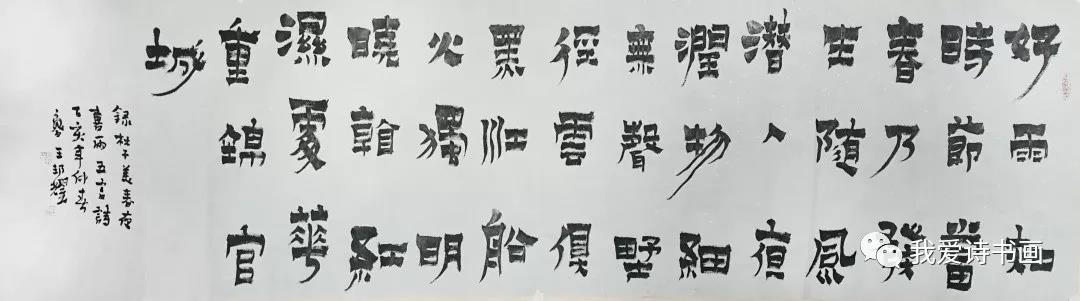 好雨知
時節當
春乃發
生隨風
潛入夜
潤物細
無聲野
徑雲俱
黑江船
火獨明
曉看紅
濕處華
重錦官
城
錄杜子美春夜
喜雨五言詩
亥年仲春
王邦
我爱诗书画